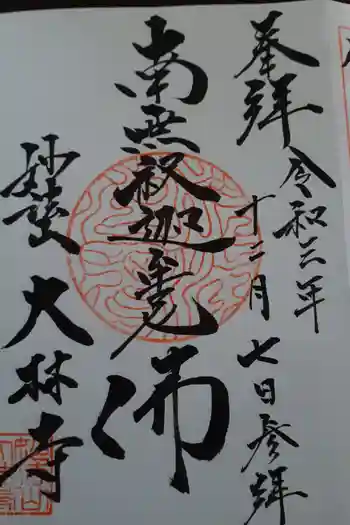 奉拝
令和三年
十二月
七日参拝
南無釈迦牟尼佛
大林寺